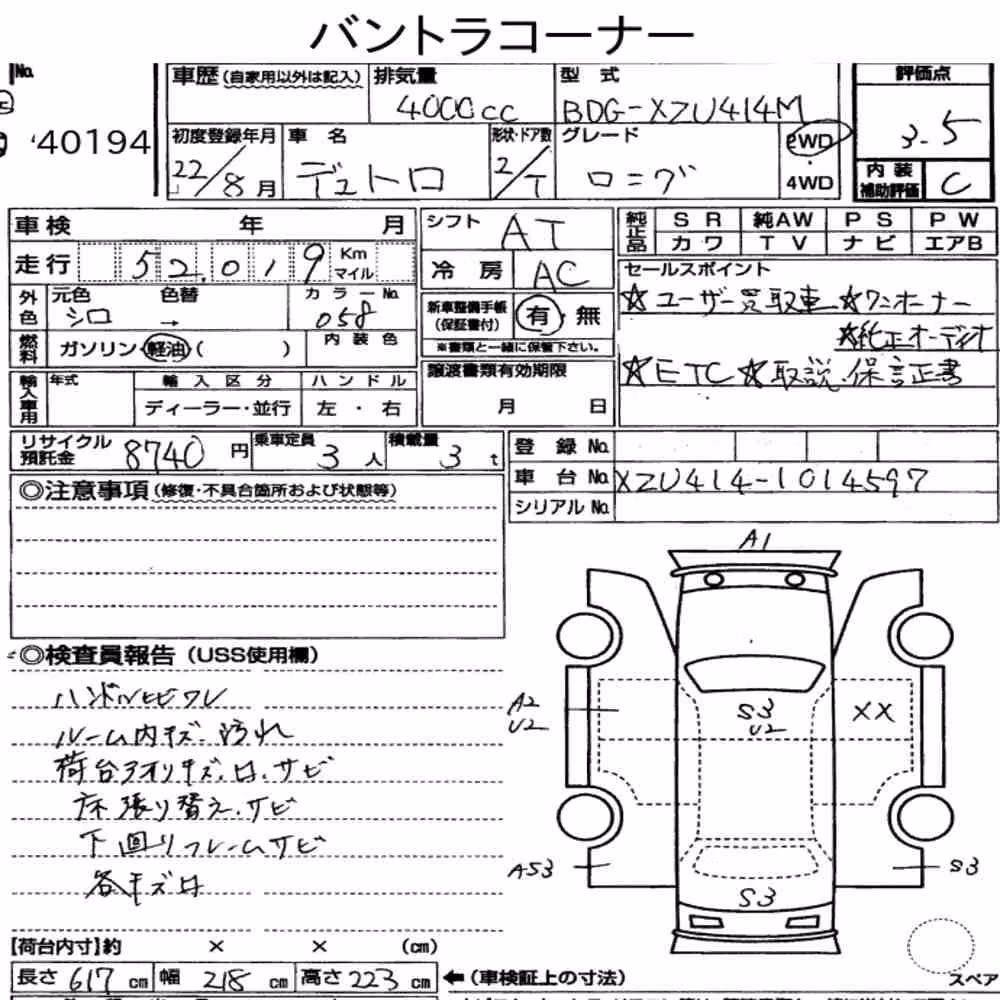 バントラコーナー
No.
40194
車歴 (自家用以外は記入)
排気量
4000cc
型 式
BDG-XZU414M
評価点
3.5
初度登録年月
22/8 月
車 名
デュトロ
形状・ドア数
2/T
グレード
ロング
2WD
・
4WD
内 装
補助評価
C
車検 年 月
走行 52.019 Km マイル
シフト AT
冷 房 AC
純正品
S R 純AW P S P W
カ ワ T V ナ ビ エアB
外色
元色 シロ
色替 →
カラーNo. 058
新車整備手帳
(保証書付)
有・無
※書類と一緒に保管下さい。
セールスポイント
☆ユーザー買取車 ☆ワンオーナー
☆純正オーディオ
☆ETC ☆取説・保証書
燃料
ガソリン・軽油・( )
内 装 色
輸入車用
年式
輸 入 区 分
ディーラー・並行
ハ ン ド ル
左 ・ 右
譲渡書類有効期限
月 日
リサイクル
預託金 8740 円
乗車定員 3 人
積載量 3 t
登 録 No.
車 台 No. XZU414-1014597
シリアル No.
◎注意事項 (修復・不具合箇所および状態等)
◎検査員報告 (USS使用欄)
ハンドルヒビワレ
ルーム内キズ・汚れ
荷台アオリキズ・凹・サビ
床張り替え・サビ
下回りフレームサビ
各キズ凹
A1
A2
U2
S3
U2
XX
AS3
S3
S3
スペア
【荷台内寸】約 × × (cm)
長さ 617 cm 幅 218 cm 高さ 223 cm
←(車検証上の寸法)